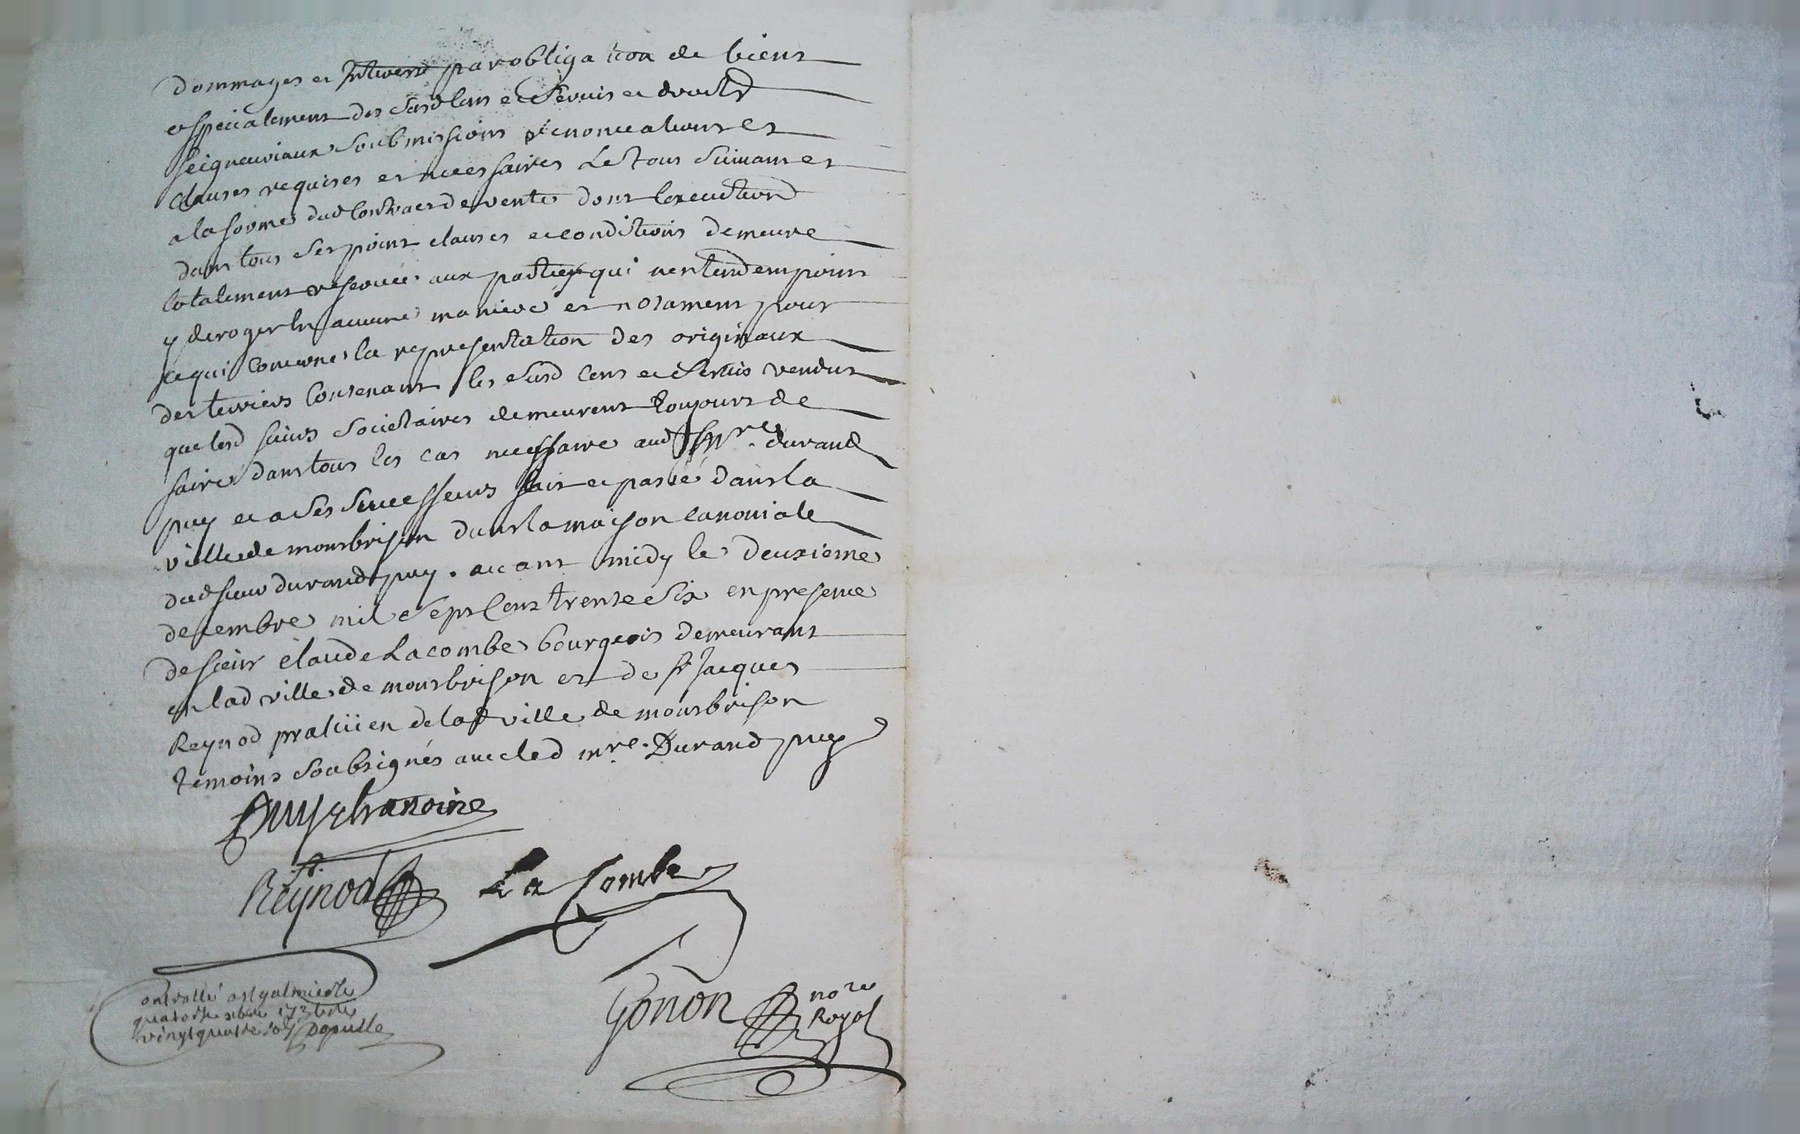 Dommages et Interest par obligation de biens
et specialement des susd cens et servis et droits
seigneuriaux soubmissions renonciations et
clauses requises et necessaires Le tout suivant et
a la forme dud contract de vente dont lexecution
dans tous ses point clauses et conditions demeure
totalement reservée aux parties qui nentendem point
y deroger en aucune maniere et notament pour
ce qui concerne la representation des originaux
des terriers contenant les susd cens et servis vendus
que lesd sieurs societaires demeurent toujours de
faire dans tous les cas necessaire aud mre. durand
puy et a ses successeurs fait et passé dans la
ville de montbrison dans la maison canoniale
dud sieur durand puy. avant midy le deuxieme
decembre mil sept cent trente six en presence
de sieur claude Lacombe bourgeois demeurant
en lad ville de montbrison et de sr Jacques
Reynod praticien de lad ville de montbrison
temoins soubsignés avec led mre. Durand puy
Puy chanoine
Reynod La Combe
Gonon nore
Royal
controllé a st galmier le
quatorze xbre 1736
vingt quatre sols Depulle